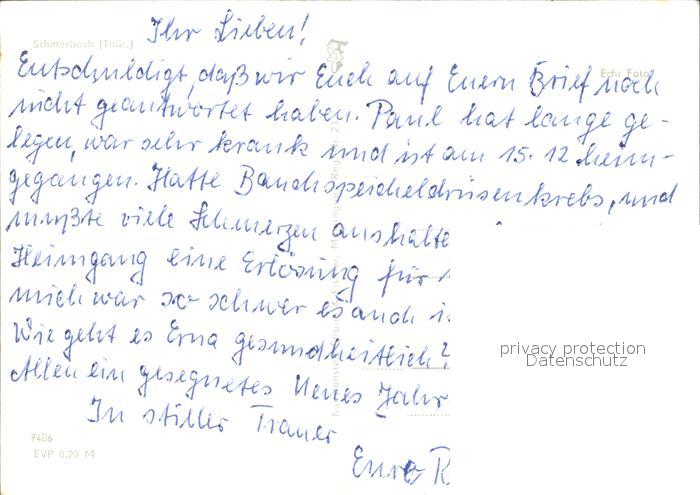 Schmerbach (Thür.)
Echt Foto
Ihr Lieben!
Entschuldigt, daß wir Euch auf Euern Brief noch
nicht geantwortet haben. Paul hat lange ge-
legen, war sehr krank und ist am 15.12 heim-
gegangen. Hatte Bauchspeicheldrüsenkrebs, und
mußte viele Schmerzen aushalte
Heimgang eine Erlösung für
mich war so schwer es auch i.
Wie geht es Erna gesundheitlich?
Allen ein gesegnetes Neues Jahr
In stiller Trauer
Eure R
7406
EVP 0,20 M
privacy protection
Datenschutz